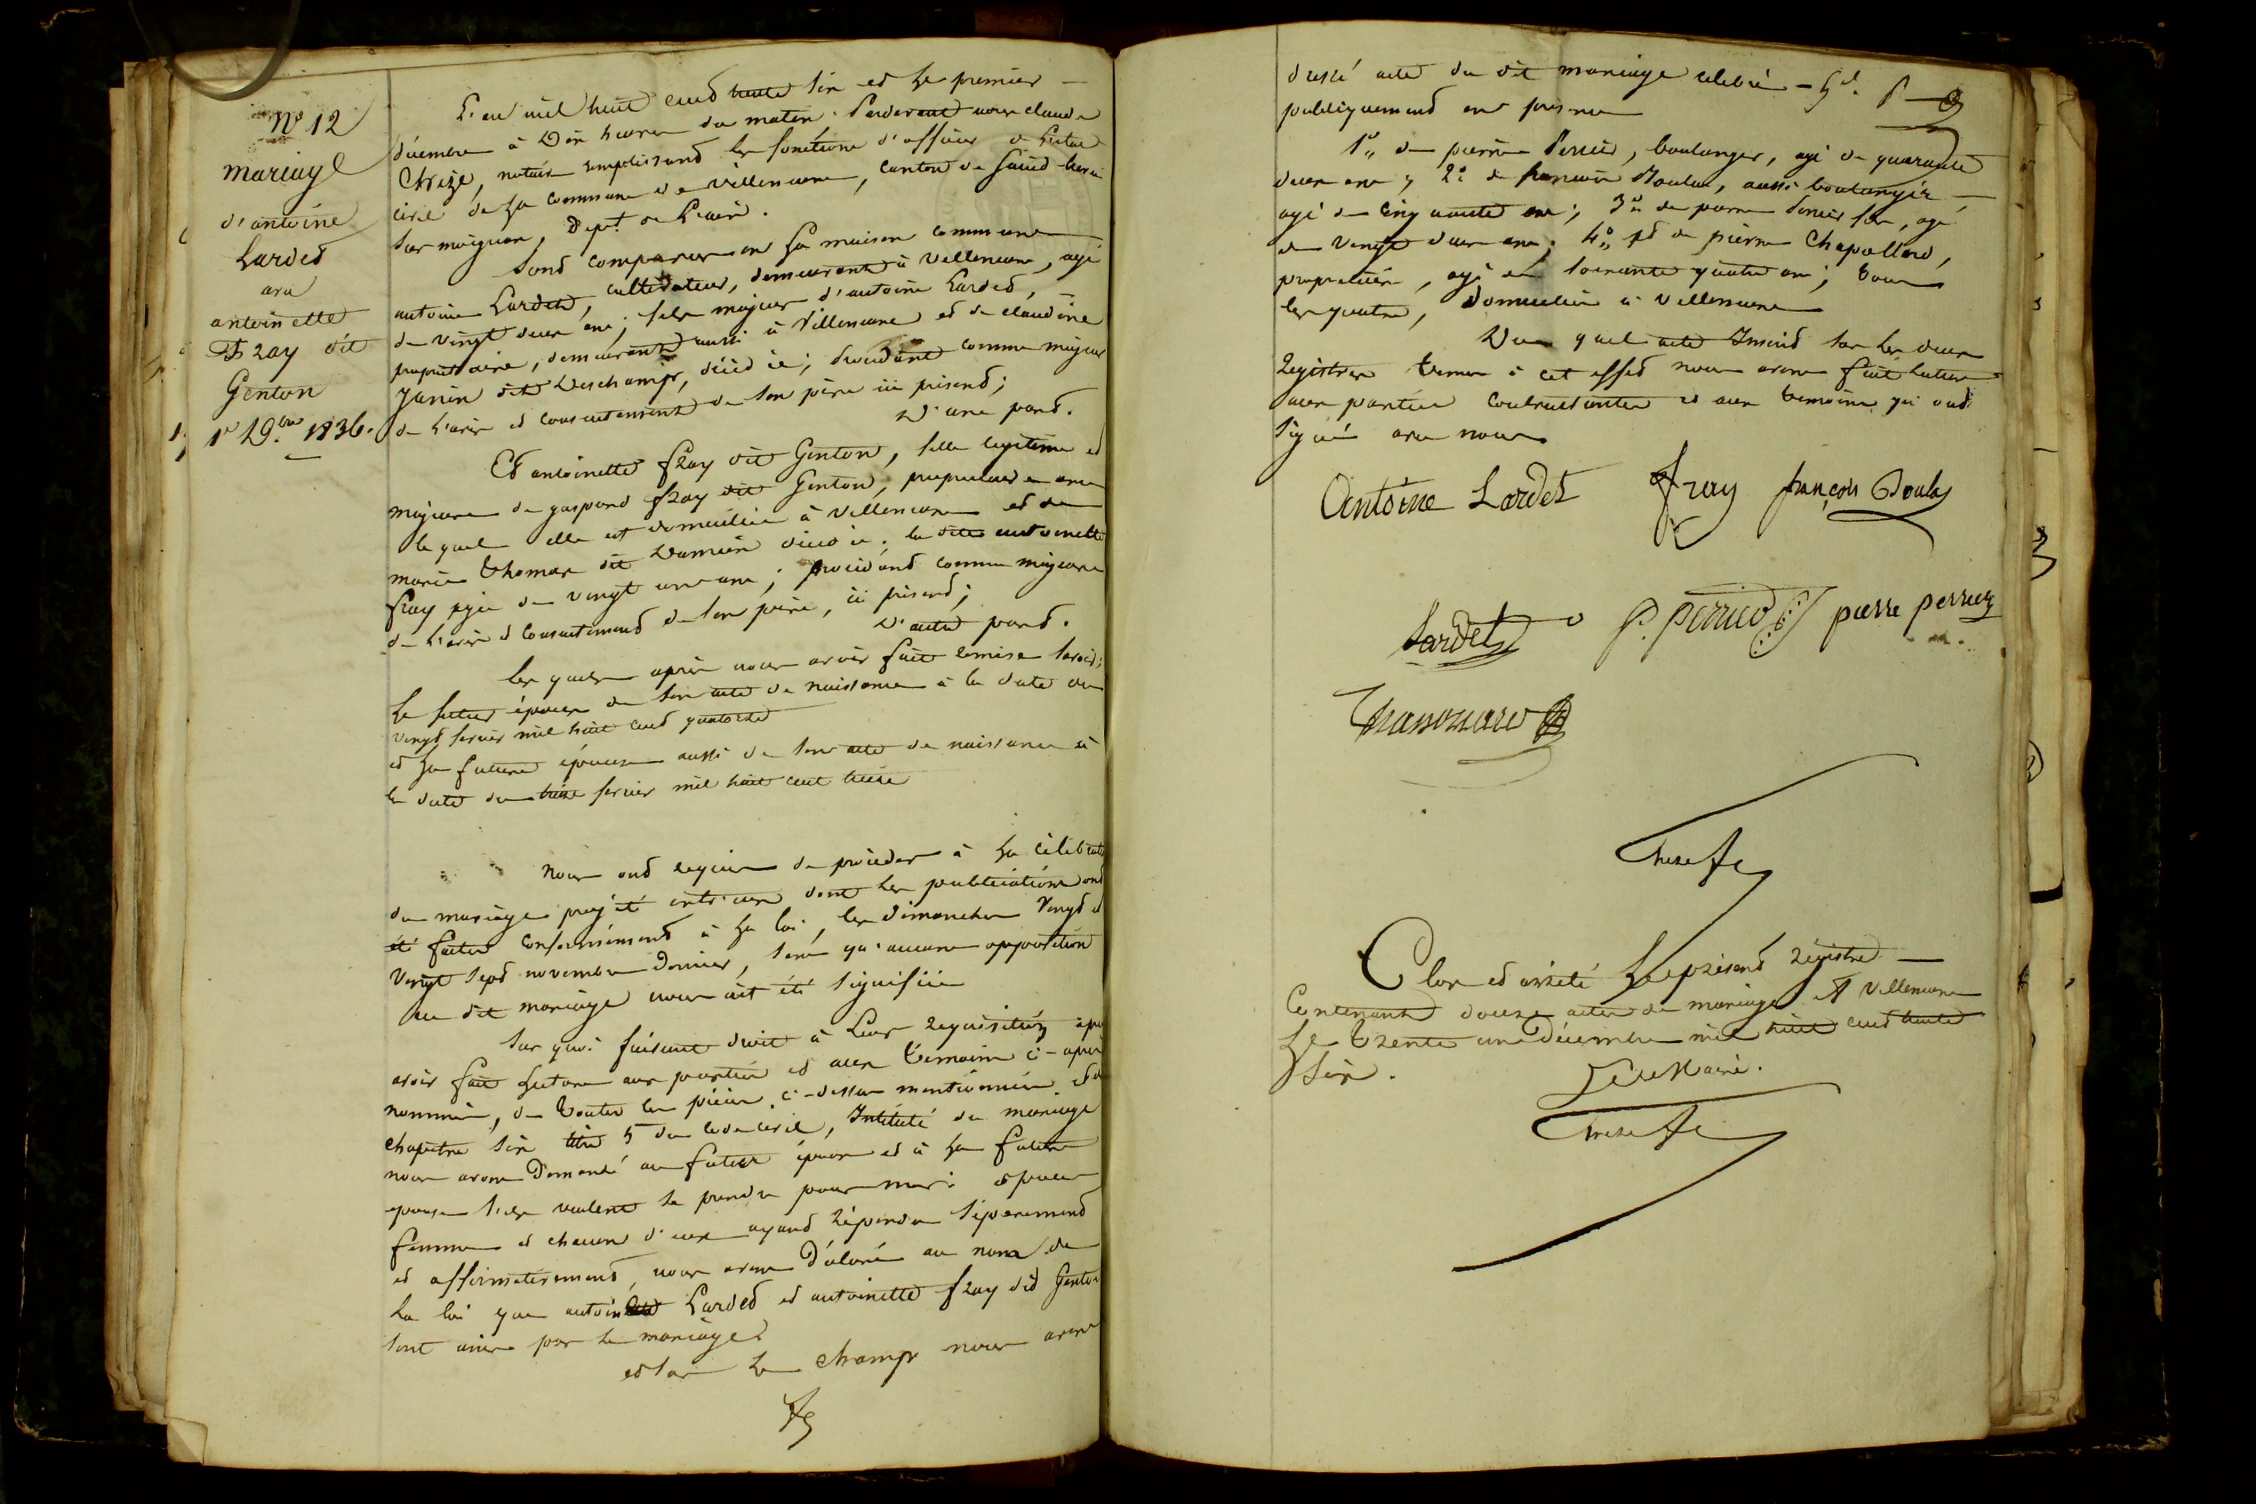 N° 12
mariage
d'antoine
Lardet
avec
antoinette
Fray dit
Genton
1er 10bre 1836.
L'an mil huit cent trente six et le premier
décembre à dix heures du matin. Pardevant nous claude
notaire remplissant les fonctions d'officier de l'état
civil de la commune de Villeneuve, canton de Saint-trivier
sur moignan, Dépt. de L'ain.
Sont comparus en la maison commune
antoine Lardet, cultivateur, demeurant à Villeneuve, agé
de vingt deux ans, fils majeur d'antoine Lardet,
propriétaire, demeurant aussi à Villeneuve et de claudine
Janin dit Deschamps, décédée; procédant comme majeur
de l'avis et consentement de son père ici présent;
D'une part.
Et antoinette fray dit Genton, fille légitime et
majeure de gaspard fray dit Genton, propriétaire avec
lequel elle est domiciliée à Villeneuve et de
marie thomas dit Damien décédée; la dite antoinette
fray agée de vingt ans; procédant comme majeure
de l'avis et consentement de son père, ici présent;
D'autre part.
lesquels après nous avoir fait remise savoir;
le futur époux de son acte de naissance à la date du
vingt février mil huit cent quatorze
et la future épouse aussi de son acte de naissance à
la date du treize février mil huit cent treize
nous ont requis de procéder à la célébration
du mariage projeté entr'eux dont les publications ont
été faites conformément à la loi, les dimanches vingt et
vingt sept novembre dernier, sans qu'aucune opposition
au dit mariage nous ait été signifiée
sur quoi faisant droit à leur réquisition après
avoir fait lecture aux parties et aux témoins ci-après
nommés, de toutes les pièces ci-dessus mentionnées et du
chapitre six titre 5 du code civil, Intitulé du mariage
nous avons demandé au futur époux et à la future
épouse s'ils veulent se prendre pour mari et pour
femme et chacun d'eux ayant répondu séparément
et affirmativement, nous avons déclaré au nom de
la loi que antoine Lardet et antoinette fray dit Genton
sont unis par le mariage.
et sur le champ nous avons
dressé acte du dit mariage célébré
publiquement en présence
1° de pierre Perrier, boulanger, agé de quarante
deux ans; 2° de françois Doulas, aussi boulanger
agé de cinquante ans; 3° de pierre Perrier fils, agé
de vingt deux ans; 4° et de pierre Chapolard,
propriétaire, agé de soixante quatre ans; tous
les quatre, domiciliés à Villeneuve
Du quel acte Inscrit sur les deux
registres tenus à cet effet nous avons fait lecture
aux parties contractantes et aux témoins qui ont
signé avec nous
Antoine Lardet Fray françois Doulas
Lardet P. perrier pierre perrier
Clos et arrêté le présent régistre
Contenant douze actes de mariage A Villeneuve
le trente un décembre mil huit cent trente
six.
Le Maire.